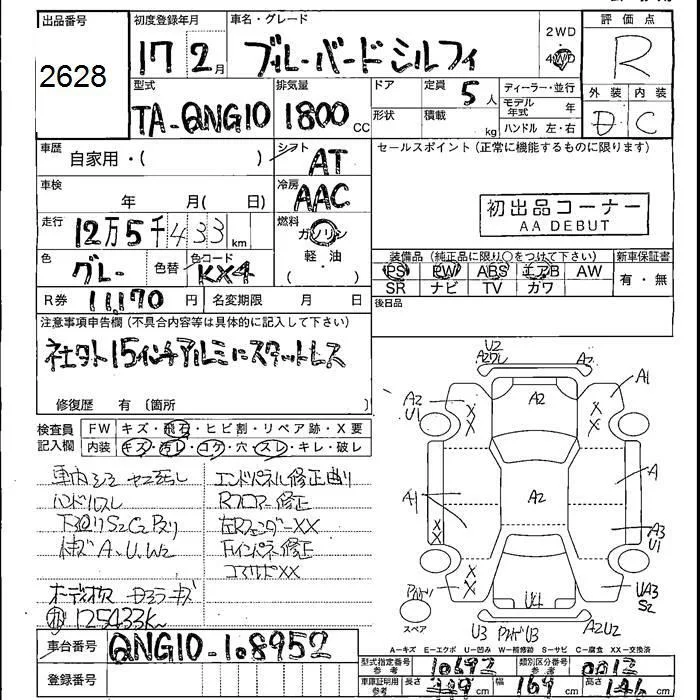 出品番号 初度登録年月 車名・グレード 評価点
2628 17 2月 ブルーバードシルフィ 2WD 4WD R
型式 排気量 ドア 定員 5人 ディーラー・並行 外装 内装
TA-QNG10 1800 CC 形状 積載 kg モデル年式 年 D C
ハンドル 左・右
車歴 自家用・( ) シフト AT セールスポイント(正常に機能するものに限ります)
車検 年 月( 日) 冷房 AAC
初出品コーナー
AA DEBUT
走行 12万5千433km 燃料 ガソリン 軽油 ( )
装備品(純正品に限り○をつけて下さい) 新車保証書
色 グレー 色替 色コード KX4 PS PW ABS エアB AW 有・無
SR ナビ TV カワ
R券 11,170円 名変期限 月 日 後日品
注意事項申告欄(不具合内容等は具体的に記入して下さい)
社外15インチアルミにスタットレス
修復歴 有(箇所 )
検査員記入欄 FW キズ・飛石・ヒビ割・リペア跡・X要
内装 キズ・汚レ・コゲ・穴・スレ・キレ・破レ
エンドパネル修正曲り
ハンドルスレ Rフロアー修正
下廻りS2C2 左RフェンダーXX
A、U、W2 修正
125433K
U2
A2 A2 A1
A2 U1
A2
A1 A2 A
A3 U1
UA3 S2
U4
スペア U3 U3 A2U2
A-キズ E-エクボ U-凹み W-補修跡 S-サビ C-腐食 XX-交換済
車台番号 QNG10-108952
型式指定番号 参考 10692 類別区分番号 参考 0012
登録番号 車庫証明用 参考 長さ cm 幅 169 cm 高さ cm